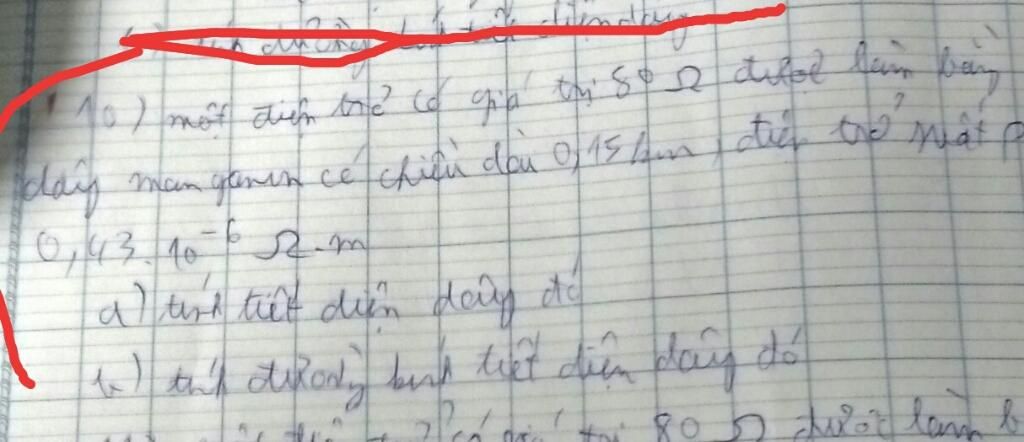 tính đường kính tiết diện dây
10) một điện trở có giá trị 50 Ω được làm bằng
dây manganin có chiều dài 0,15 km, điện trở suất
0,43.10⁻⁶ Ω.m
a) tính tiết diện dây đó
b) tính đường kính tiết diện dây đó
trị 80 Ω được làm b